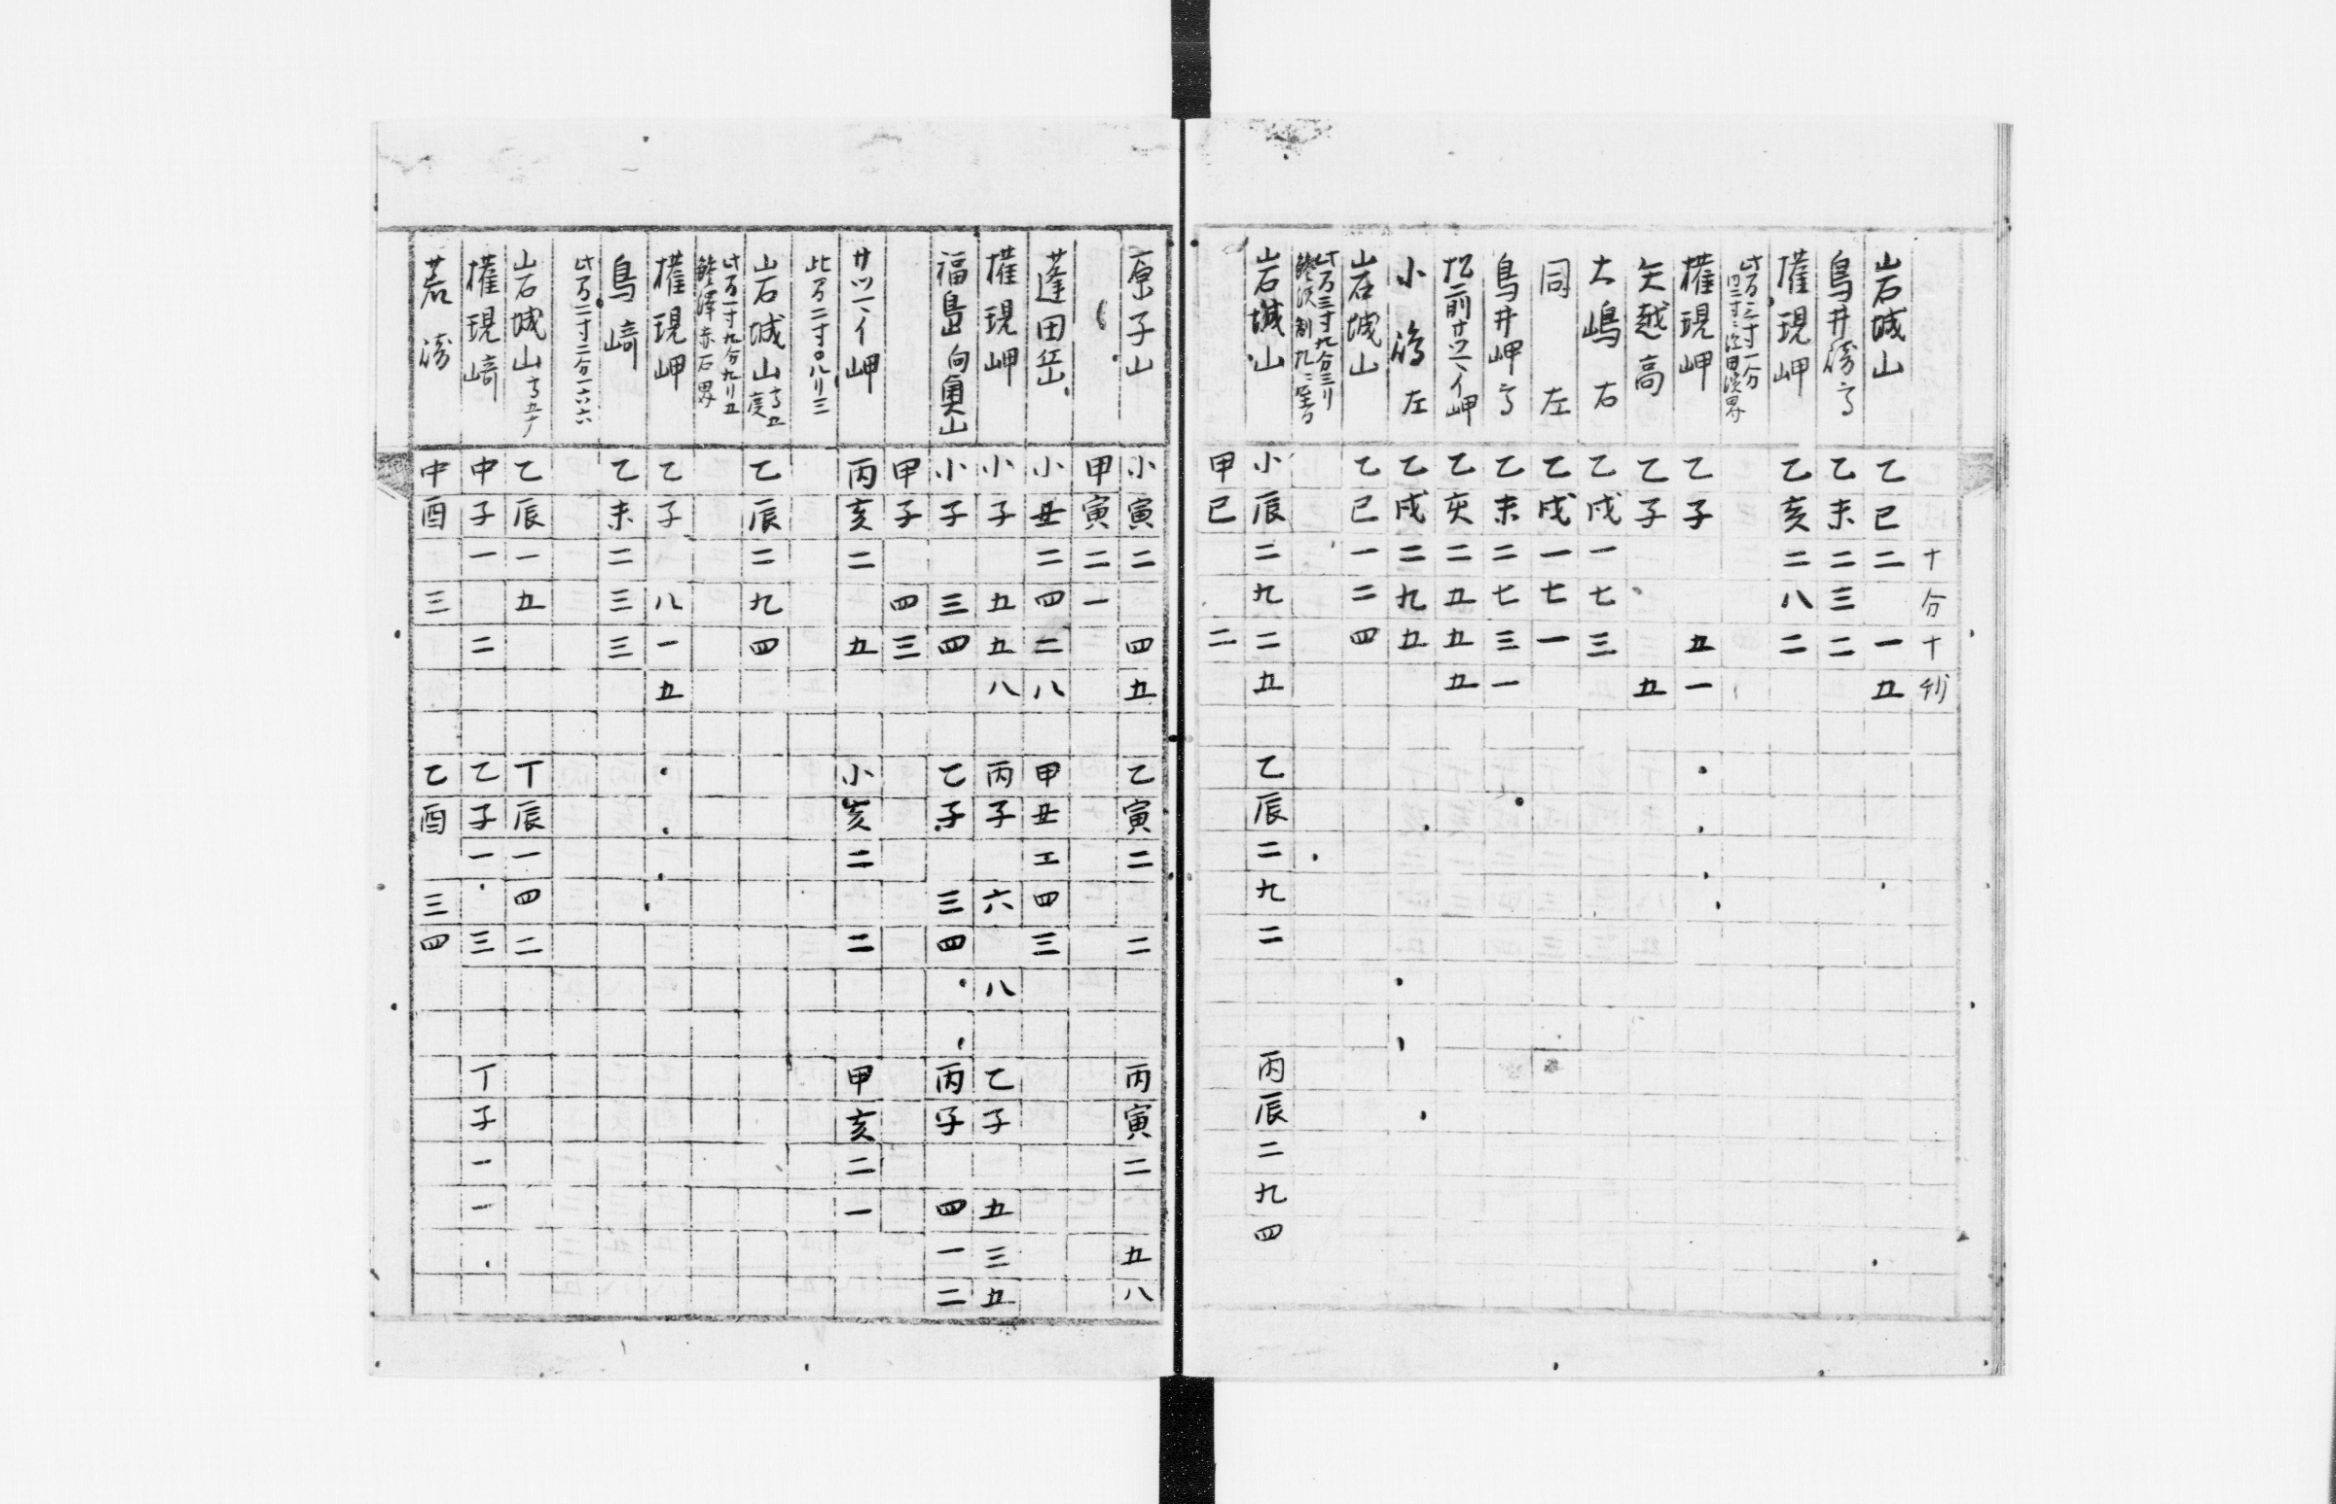 十分十釐
岩城山 乙巳二 一五
鳥井崎高 乙未二三二
権現岬 乙亥二八二
此万二寸一分
権現岬 乙子 五一
矢越高 乙子 五
大嶋 右 乙戌一七三
同 左 乙戌一七一
鳥井岬高 乙未二七三一
松前 岬 乙亥二五五五
小 左 乙戌二九五
岩城山 乙巳一二四
此万三寸九分三リ
岩城山 小辰二九二五 乙辰二九二 丙辰二九四
甲巳 二
原子山 小寅二 四五 乙寅二 二 丙寅二 五八
甲寅二一
蓬田岳 小丑二四二八 甲丑 四三
権現岬 小子 五五八 丙子 六 八 乙子 五三五
福島向奥山 小子 三四 乙子 三四 丙子 四一二
甲子 四三
岬 丙亥二 五 小亥二 二 甲亥二一
此万二寸〇八リ三
岩城山 乙辰二九四
此万一寸九分九リ五
鯵澤赤石界
権現岬 乙子 八一五
鳥崎 乙未二三三
此万二寸二分一六六
岩城山 乙辰一五 丁辰一四二
権現崎 中子一 二 乙子一 三 丁子一一
中酉 三 乙酉 三四